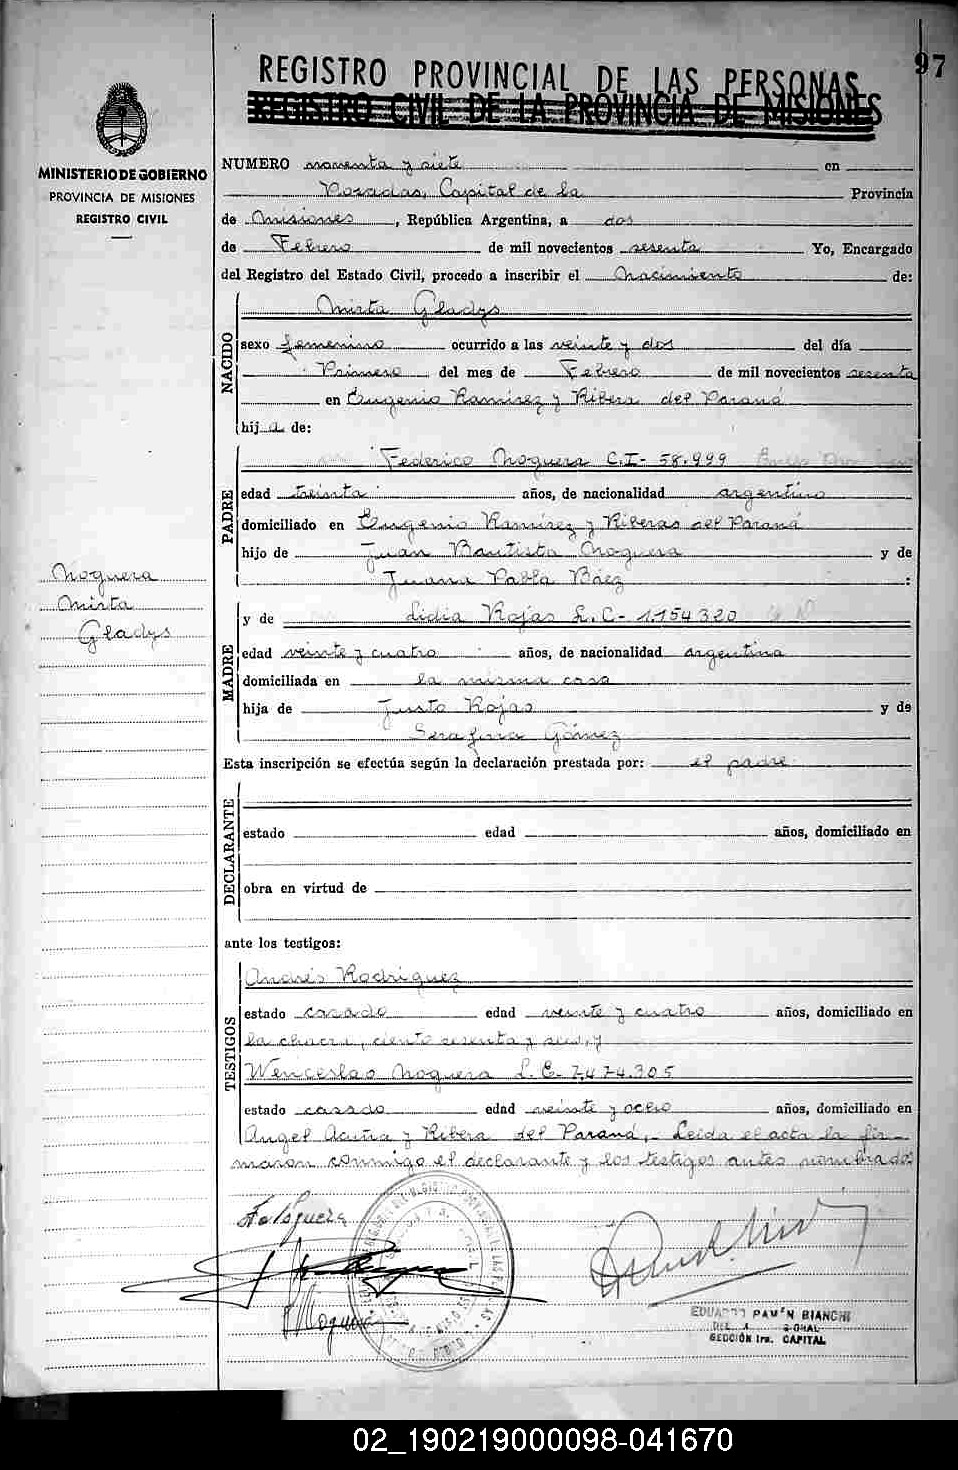 97
REGISTRO PROVINCIAL DE LAS PERSONAS
REGISTRO CIVIL DE LA PROVINCIA DE MISIONES
MINISTERIO DE GOBIERNO
PROVINCIA DE MISIONES
REGISTRO CIVIL
NUMERO noventa y siete en
Posadas, Capital de la Provincia
de Misiones, República Argentina, a dos
de Febrero de mil novecientos sesenta Yo, Encargado
del Registro del Estado Civil, procedo a inscribir el Nacimiento de:
NACIDO
Mirta Gladys
sexo femenino ocurrido a las veinte y dos del día
Primero del mes de Febrero de mil novecientos sesenta
en Eugenio Ramírez y Ribera del Paraná
hij a de:
PADRE
Federico Noguera C.I- 58.999
edad treinta años, de nacionalidad argentino
domiciliado en Eugenio Ramírez y Riberas del Paraná
hijo de Juan Bautista Noguera y de
Juana Pabla Báez :
Noguera
Mirta
Gladys
MADRE
y de Lidia Rojas L.C- 1.154320
edad veinte y cuatro años, de nacionalidad argentina
domiciliada en la misma casa
hija de Justo Rojas y de
Serafina Gómez
Esta inscripción se efectúa según la declaración prestada por: el padre
DECLARANTE
estado edad años, domiciliado en
obra en virtud de
ante los testigos:
TESTIGOS
Andrés Rodríguez
estado casado edad veinte y cuatro años, domiciliado en
la chacra, ciento sesenta y seis, y
Wenceslao Noguera L.E- 7.474.305
estado casado edad veinte y ocho años, domiciliado en
Angel Acuña y Ribera del Paraná,. Leída el acta la fir-
maron conmigo el declarante y los testigos antes nombrados
Noguera
EDUARDO RAMÓN BIANCHI
SECCIÓN 1ra. CAPITAL
02_190219000098-041670